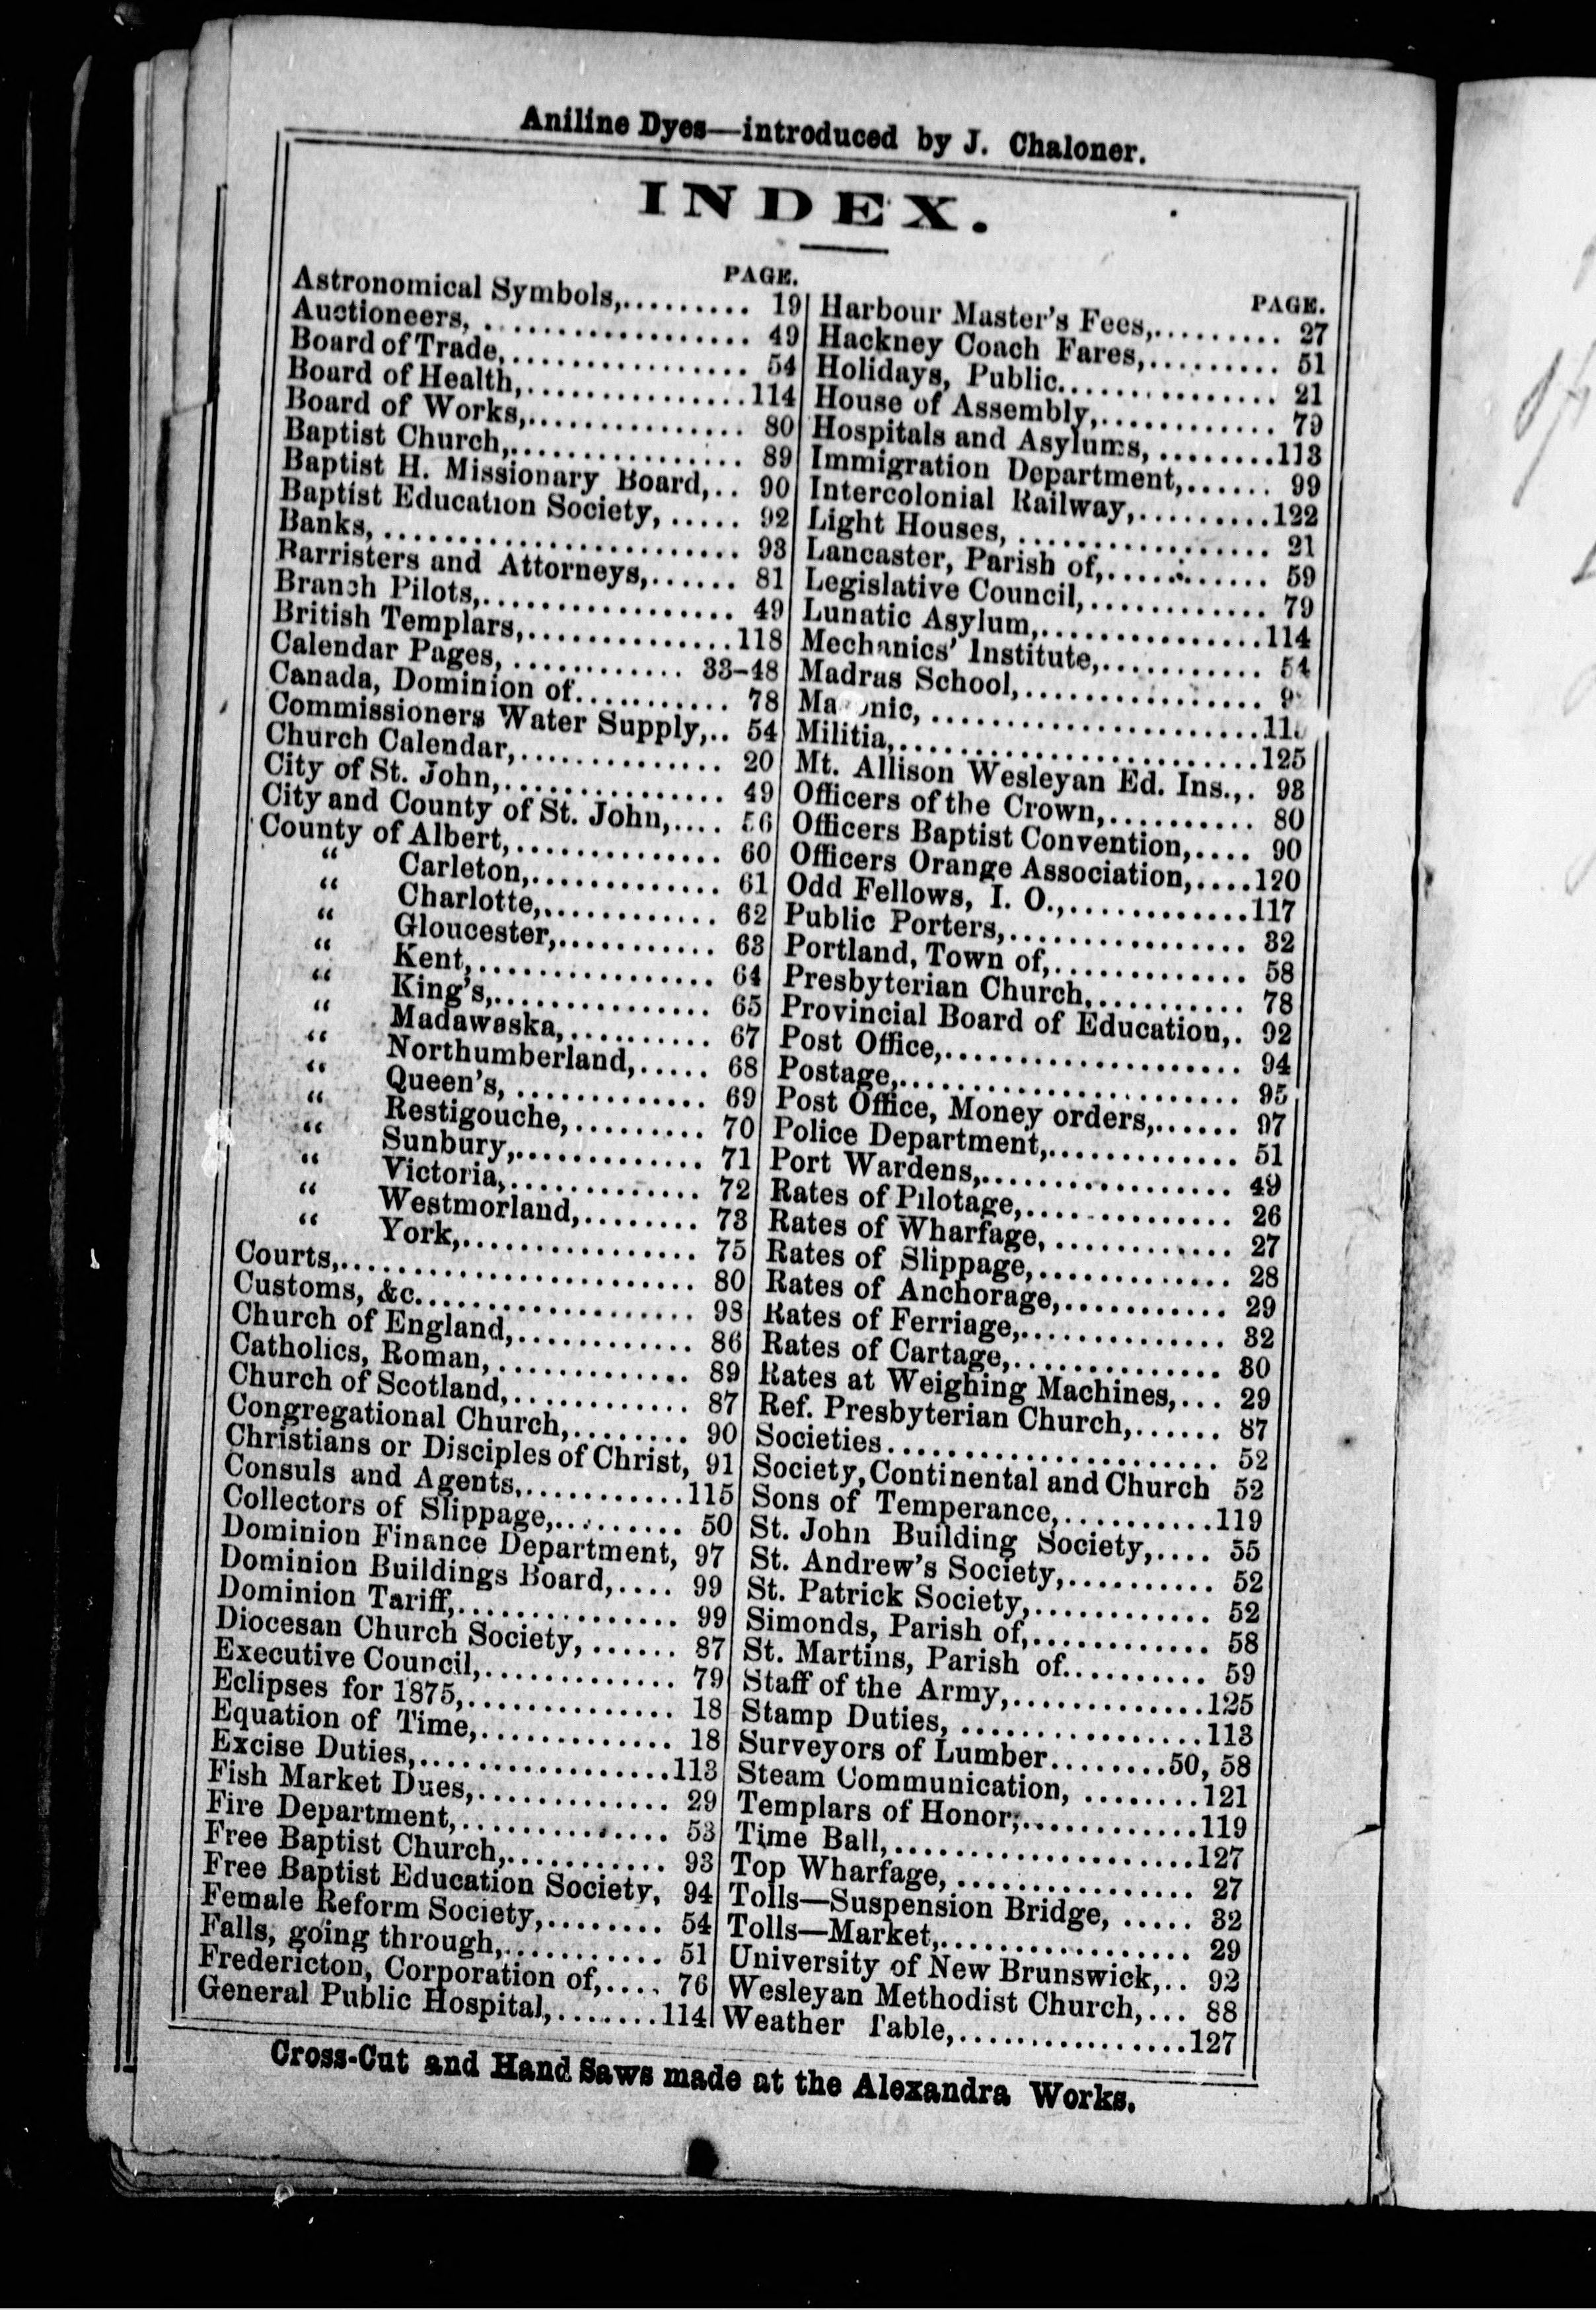 Aniline Dyes—introduced by J. Chaloner.
INDEX.
PAGE.
Astronomical Symbols,......... 19
Auctioneers, .................. 49
Board of Trade,................ 54
Board of Health,...............114
Board of Works,............... 80
Baptist Church,................ 89
Baptist H. Missionary Board,.. 90
Baptist Education Society, ..... 92
Banks, ........................ 93
Barristers and Attorneys,...... 81
Branch Pilots,................. 49
British Templars,..............118
Calendar Pages, ............ 33-48
Canada, Dominion of........... 78
Commissioners Water Supply,.. 54
Church Calendar,.............. 20
City of St. John,................ 49
City and County of St. John,.... 56
County of Albert,.............. 60
“ Carleton,............. 61
“ Charlotte,............ 62
“ Gloucester,........... 63
“ Kent,................ 64
“ King's,............... 65
“ Madawaska,.......... 67
“ Northumberland,..... 68
“ Queen's, ............. 69
“ Restigouche,......... 70
“ Sunbury,............. 71
“ Victoria,............. 72
“ Westmorland,........ 73
“ York,................ 75
Courts,......................... 80
Customs, &c................... 98
Church of England,............ 86
Catholics, Roman, ............. 89
Church of Scotland,............ 87
Congregational Church,........ 90
Christians or Disciples of Christ, 91
Consuls and Agents,............115
Collectors of Slippage,......... 50
Dominion Finance Department, 97
Dominion Buildings Board,.... 99
Dominion Tariff,............... 99
Diocesan Church Society, ...... 87
Executive Council,............. 79
Eclipses for 1875,.............. 18
Equation of Time,............. 18
Excise Duties,..................113
Fish Market Dues,............. 29
Fire Department,.............. 53
Free Baptist Church,........... 93
Free Baptist Education Society, 94
Female Reform Society,........ 54
Falls, going through,........... 51
Fredericton, Corporation of,.... 76
General Public Hospital,.......114
PAGE.
Harbour Master's Fees,......... 27
Hackney Coach Fares,......... 51
Holidays, Public............... 21
House of Assembly,............ 79
Hospitals and Asylums, ........113
Immigration Department,...... 99
Intercolonial Railway,.........122
Light Houses, ................. 21
Lancaster, Parish of,........... 59
Legislative Council,............ 79
Lunatic Asylum,...............114
Mechanics' Institute,........... 54
Madras School,................
Militia,........................125
Mt. Allison Wesleyan Ed. Ins.,. 93
Officers of the Crown,.......... 80
Officers Baptist Convention,.... 90
Officers Orange Association,....120
Odd Fellows, I. O.,............117
Public Porters,................ 32
Portland, Town of,............. 58
Presbyterian Church,.......... 78
Provincial Board of Education,. 92
Post Office,.................... 94
Postage,....................... 95
Post Office, Money orders,...... 97
Police Department,............. 51
Port Wardens,................. 49
Rates of Pilotage,.............. 26
Rates of Wharfage, ............ 27
Rates of Slippage,............. 28
Rates of Anchorage,........... 29
Rates of Ferriage,.............. 32
Rates of Cartage,............... 30
Rates at Weighing Machines,... 29
Ref. Presbyterian Church,...... 87
Societies....................... 52
Society, Continental and Church 52
Sons of Temperance,...........119
St. John Building Society,.... 55
St. Andrew's Society,.......... 52
St. Patrick Society,............ 52
Simonds, Parish of,............ 58
St. Martins, Parish of.......... 59
Staff of the Army,.............125
Stamp Duties, .................113
Surveyors of Lumber........50, 58
Steam Communication, ........121
Templars of Honor,.............119
Time Ball,.....................127
Top Wharfage, ................ 27
Tolls—Suspension Bridge, ..... 32
Tolls—Market,................. 29
University of New Brunswick,.. 92
Wesleyan Methodist Church,... 88
Weather Table,................127
Cross-Cut and Hand Saws made at the Alexandra Works.